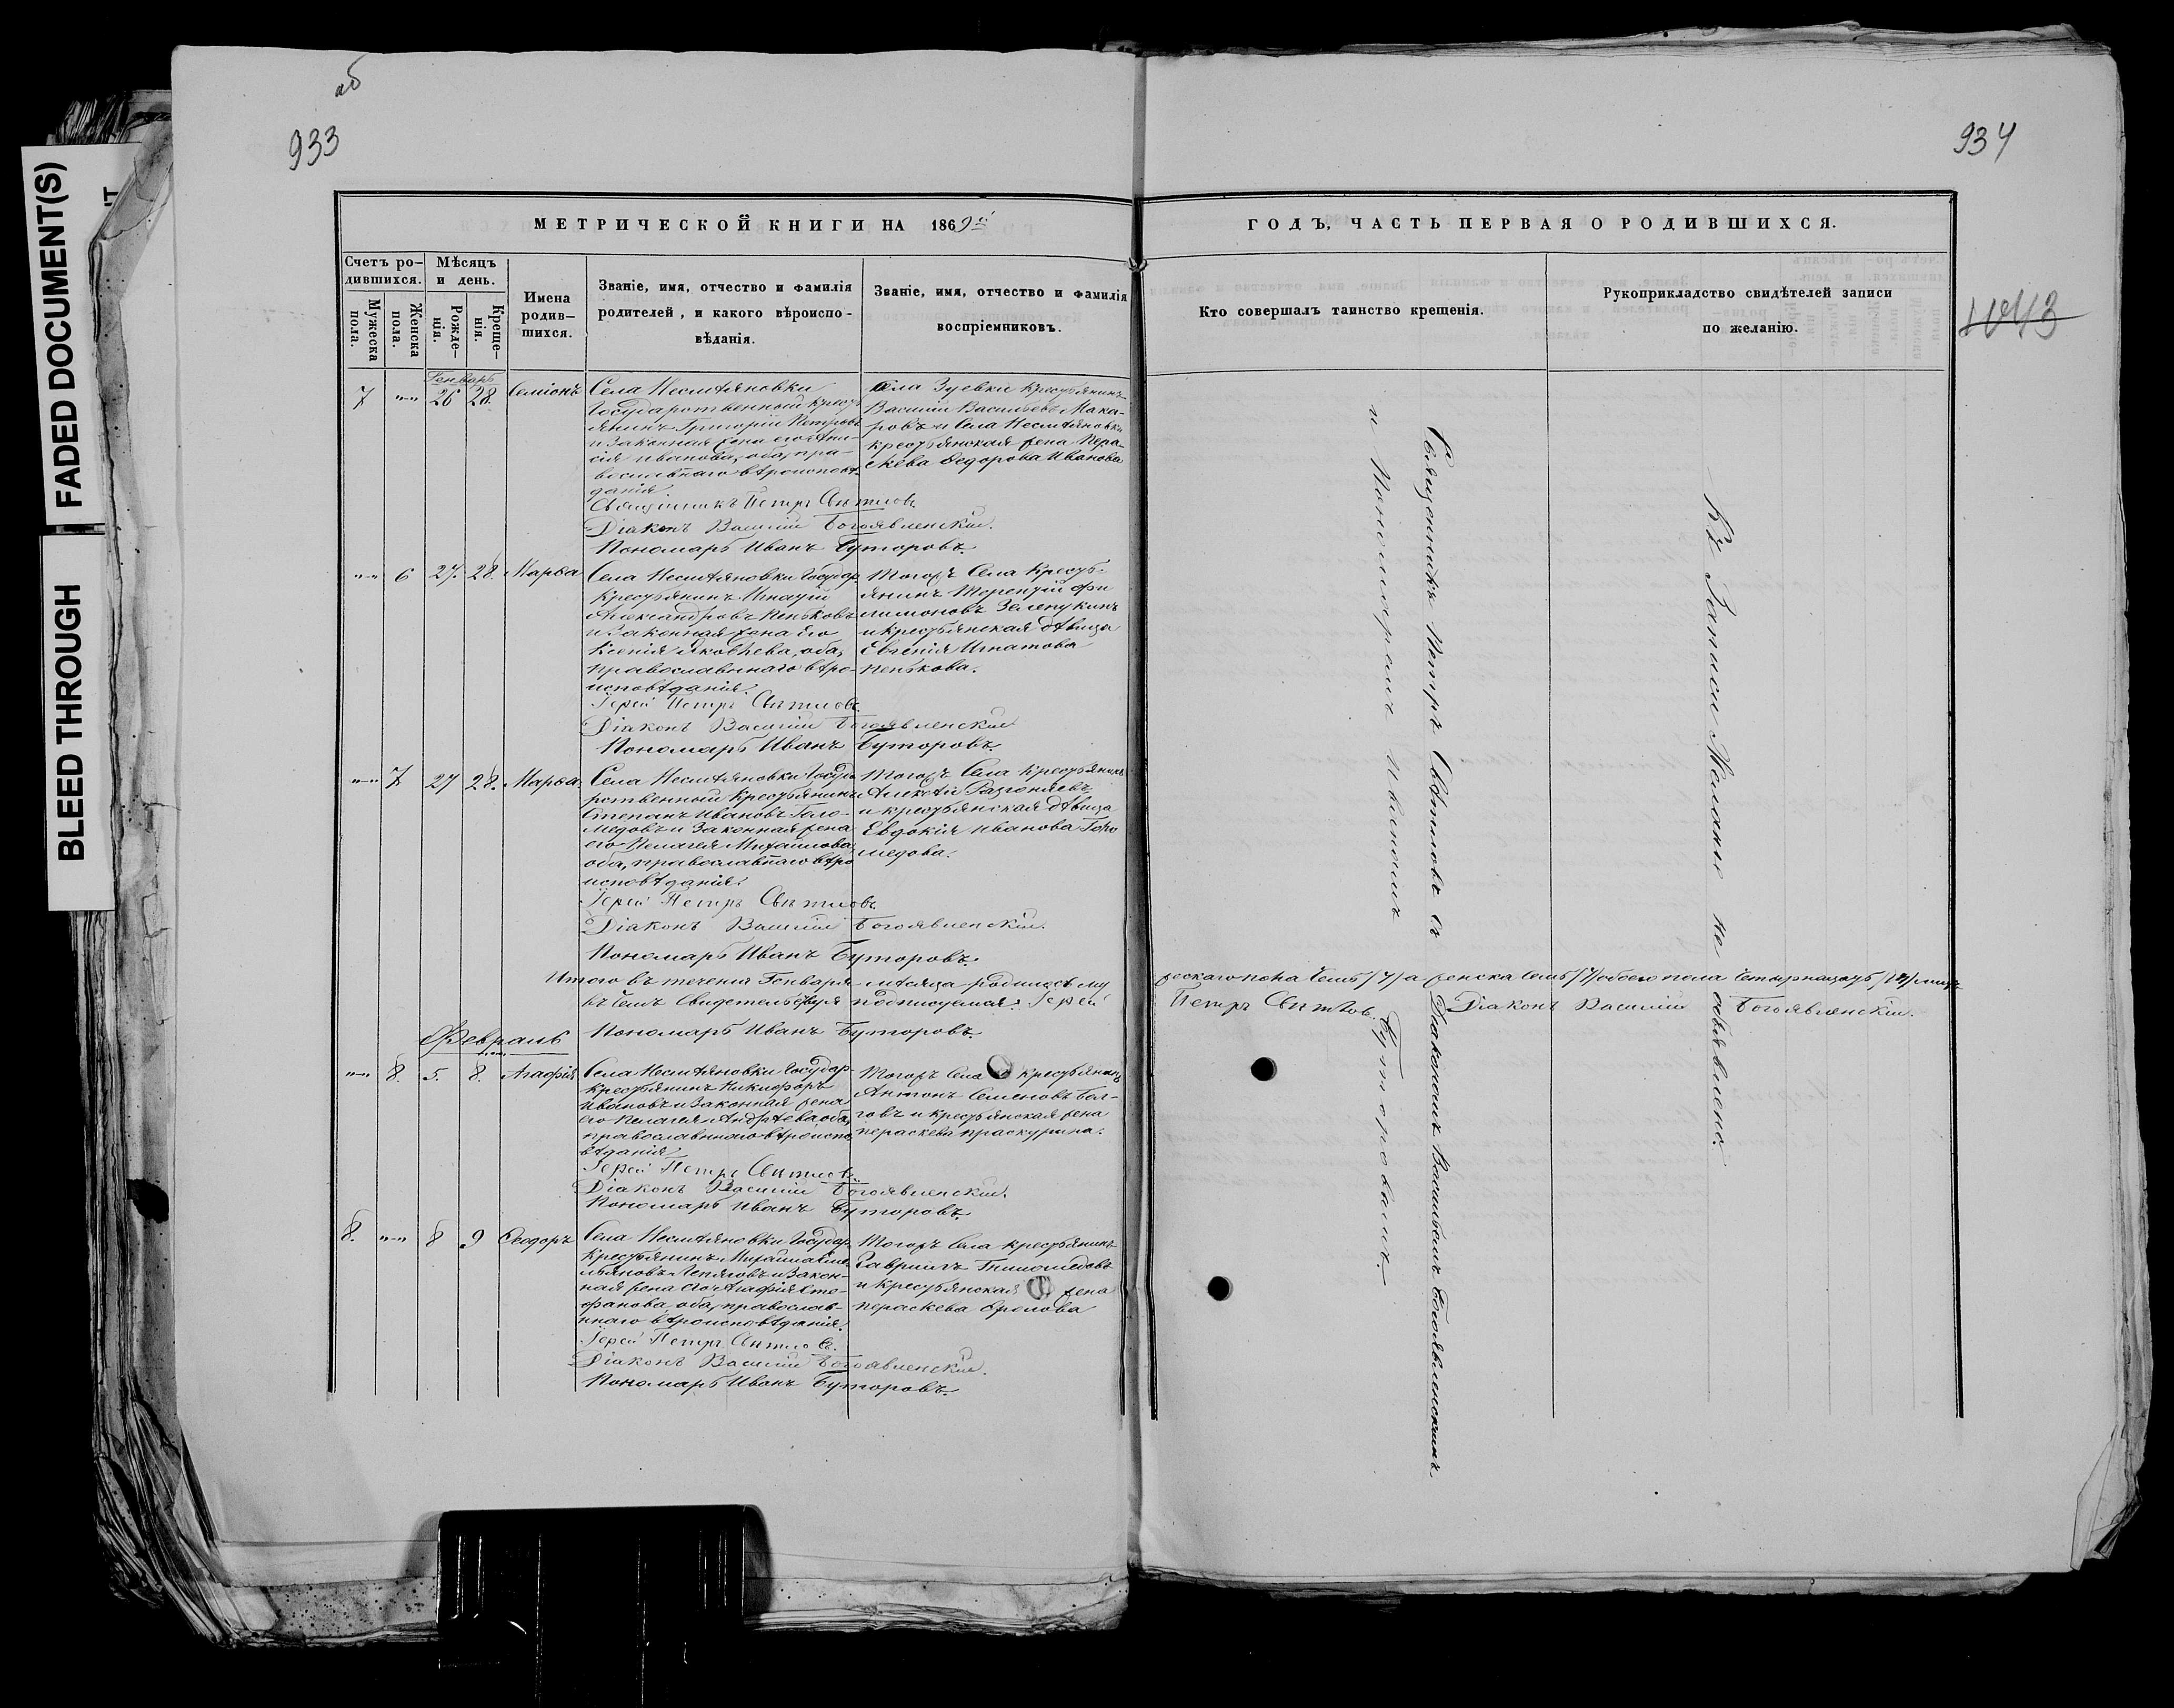 об
933
934
FADED DOCUMENT(S)
BLEED THROUGH
МЕТРИЧЕСКОЙ КНИГИ НА 1869й
ГОДЪ, ЧАСТЬ ПЕРВАЯ О РОДИВШИХСЯ.
Счетъ ро-
дившихся.
Мужеска
пола.
Женска
пола.
Мѣсяцъ
и день.
Рожде-
нія.
Креще-
нія.
Имена
родив-
шихся.
Званіе, имя, отчество и фамилія
родителей, и какого вѣроиспо-
вѣданія.
Званіе, имя, отчество и фамилія
воспріемниковъ.
Кто совершалъ таинство крещенія.
Рукоприкладство свидѣтелей записи
по желанію.
Генварь
7 "–" 26 28. Семіонъ
Села Несмѣяновки
Государственный кресть
янинъ Григорій Петровъ
и Законная жена его Ани-
сія Иванова, оба, пра-
вославнаго вѣроисповѣ
данія
Священникъ Петръ Свѣтловъ
Діаконъ Василій Богоявленскій.
Пономарь Иванъ Буторовъ.
села Зуевки Крестьянинъ
Василій Васильевъ Мака-
ровъ и Села Несмѣяновки
крестьянская жена Пера-
скева Ѳедорова Иванова
"–" 6 27. 28. Марѳа
Села Несмѣяновки Государ
Крестьянинъ Игнатій
Александровъ Пеньковъ
и Законная жена Его
Ксенія Яковлева, оба,
православннаго вѣро-
исповѣданія.
Іерей Петръ Свѣтловъ.
Діаконъ Василій Богоявленскій
Пономарь Иванъ Буторовъ.
Тогожъ Села Кресть-
янинъ Терентій Фи
лимоновъ Зелепукинъ
и крестьянская дѣвица
Евгенія Игнатова
Пенькова.
"–" 7 27 28. Марѳа.
Села Несмѣяновки Госуда
рственный Крестьянинъ
Степанъ Ивановъ Гого-
медовъ и Законная жена
его Пелагея Михаилова
оба, православнаго вѣро
исповѣданія.
Іерей Петръ Свѣтловъ.
Діаконъ Василій Богоявленскій.
Пономарь Иванъ Буторовъ.
Тогожъ Села Крестьянинъ
Алексѣй
и крестьянская дѣвица
Евдокія Иванова Гого
медова.
Итого въ теченіи Генваря мѣсяца родилось му
жескаго пола Семь /7/ а женска Семь /7/ обоего пола Четырнадцать /14/
въ чемъ Свидетельствуя подписуемся: Іерей
Петръ Свѣтловъ. Діаконъ Василій Богоявленскій.
Пономарь Иванъ Буторовъ.
Февраль
"–" 8. 5. 8. Агафія
Села Несмѣяновки Государ
крестьянинъ Никифоръ
Ивановъ и Законная жена
его Пелагея Андрѣева, оба,
православннаго вѣроиспо
вѣданія
Іерей Петръ Свѣтловъ.
Діаконъ Василій Богоявленскій.
Пономарь Иванъ Буторовъ.
Тогожъ Села крестьянинъ
Антонъ Семеновъ Бол-
говъ и крестьянская жена
Пераскева Праскурина.
8. "–" 8 9 Ѳеодоръ
Села Несмѣяновки Государ
Крестьянинъ Михаилъ Еме
льяновъ и Закон-
ная жена его Агафія Сто-
фанова, оба, православ-
ннаго вѣроисповѣданія.
Іерей Петръ Свѣтловъ.
Діаконъ Василій Богоявленскій.
Пономарь Иванъ Буторовъ.
Тогожъ Села крестьянинъ
Гаврилъ
и крестьянская жена
Пераскева Орелова
Священникъ Петръ Свѣтловъ съ Діакономъ Васильемъ Богоявленскимъ
и Пономаремъ Иваномъ Буторовымъ.
Къ Записи Желанье не объявлено.